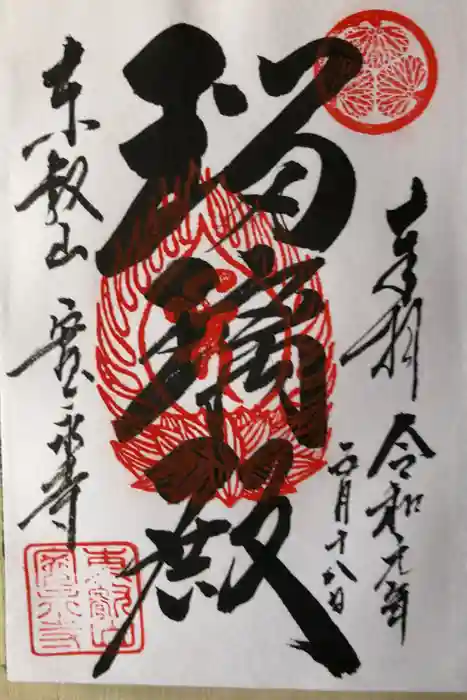 奉拝
令和元年
月十八日
瑠璃殿
東叡山 寛永寺
東叡山
寛永寺